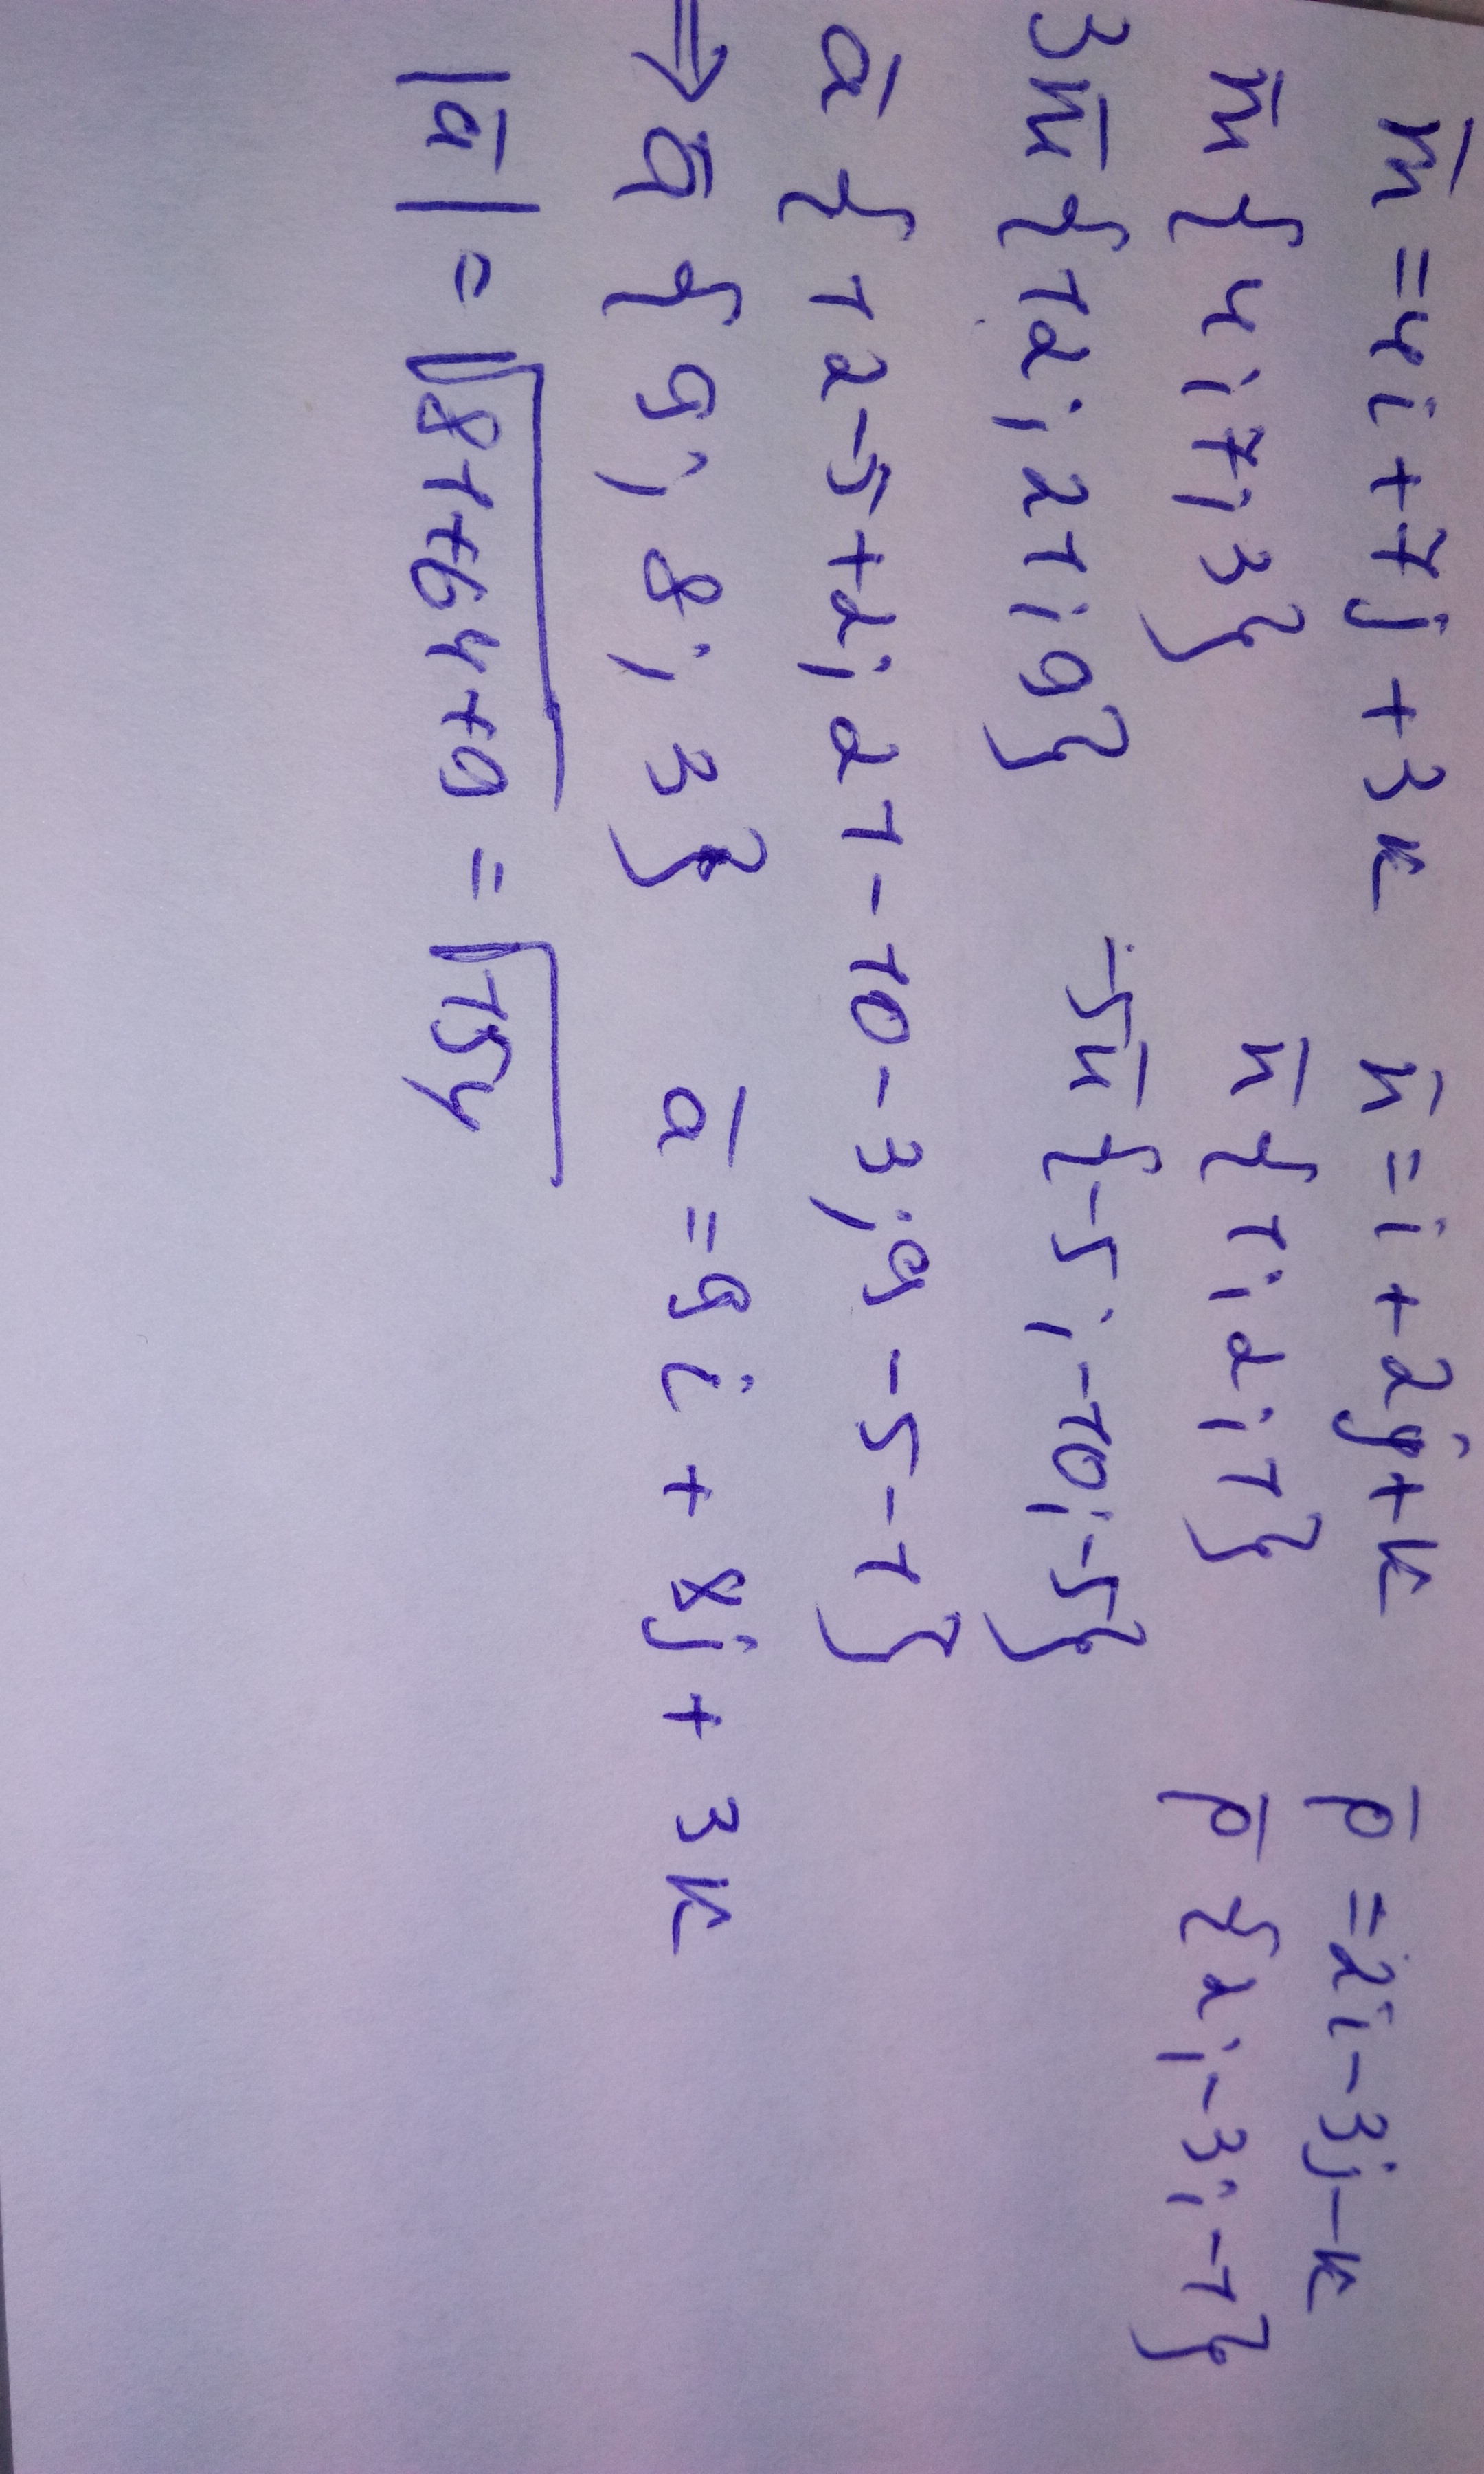 m̄ = 4i + 7j + 3k n̄ = i + 2j + k p̄ = 2i - 3j - k
m̄ {4; 7; 3} n̄ {1; 2; 1} p̄ {2; -3; -1}
3m̄ {12; 21; 9} -5n̄ {-5; -10; -5}
ā {12-5+2; 21-10-3; 9-5-1}
⇒ ā {9; 8; 3} ā = 9i + 8j + 3k
|ā| = √81+64+9 = √154